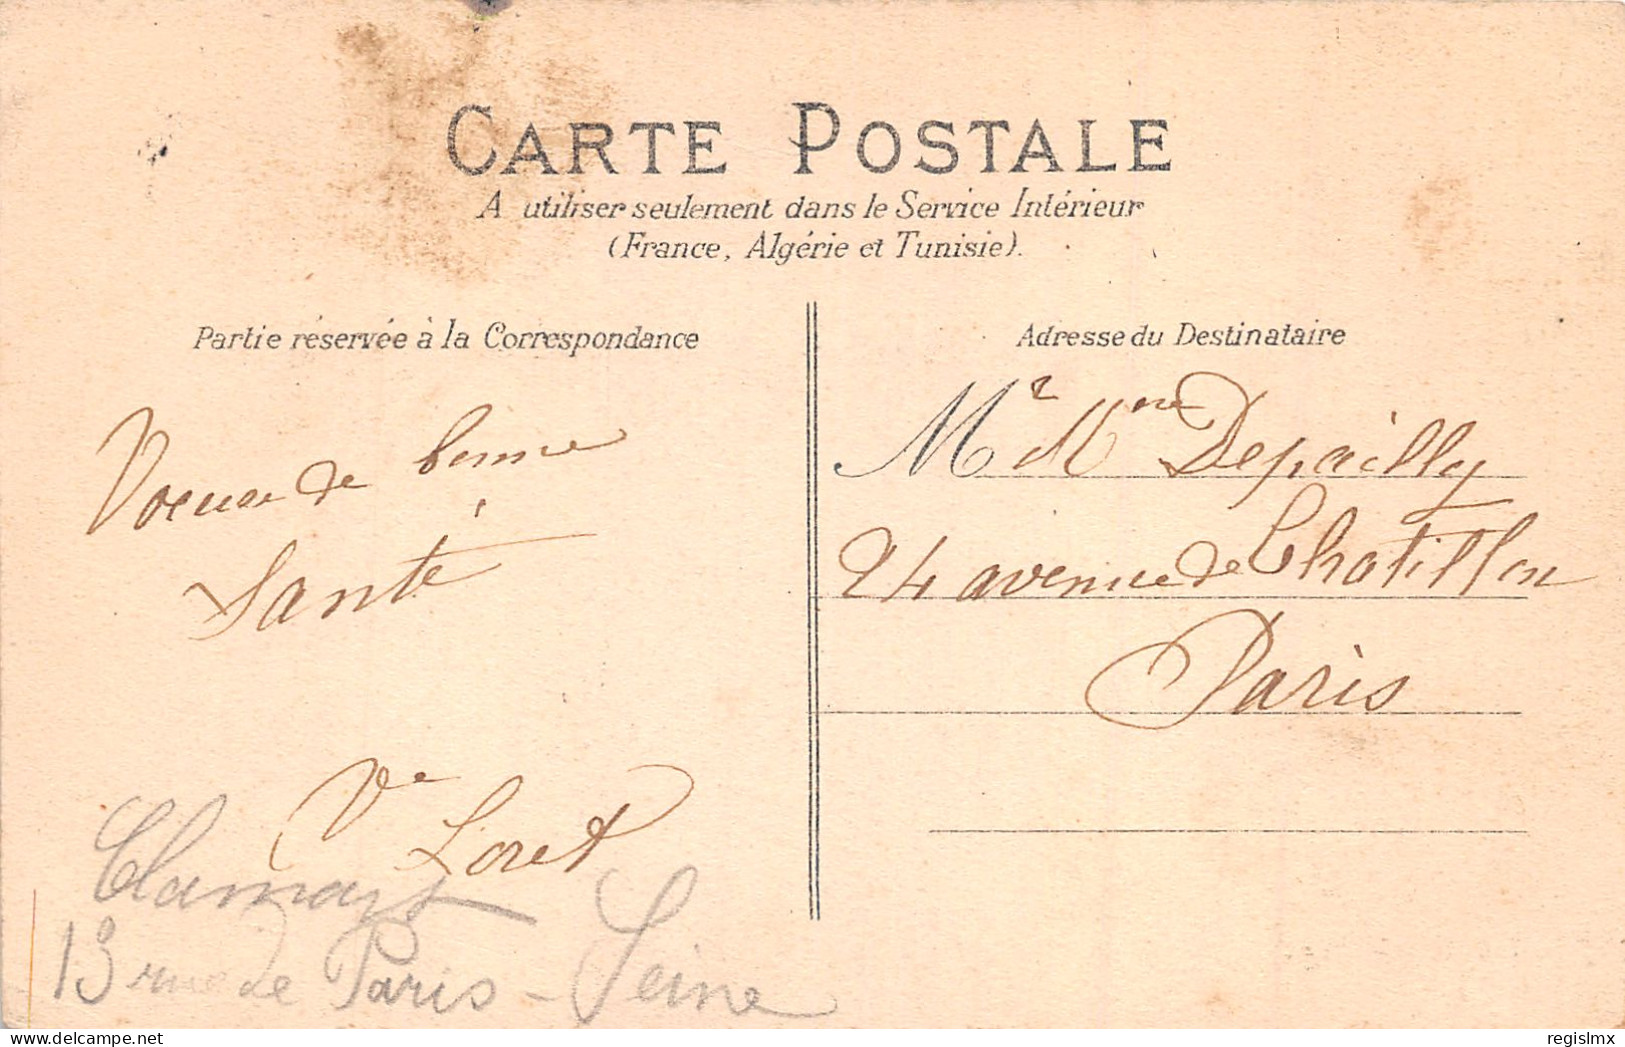 CARTE POSTALE
A utiliser seulement dans le Service Intérieur
(France, Algérie et Tunisie).
Partie réservée à la Correspondance
Voeux de bonne
Santé
Ve Loret
Clamart
13 rue de Paris - Seine
Adresse du Destinataire
Mr Mme Depailly
24 avenue de Chatillon
Paris
delcampe.net
regislmx